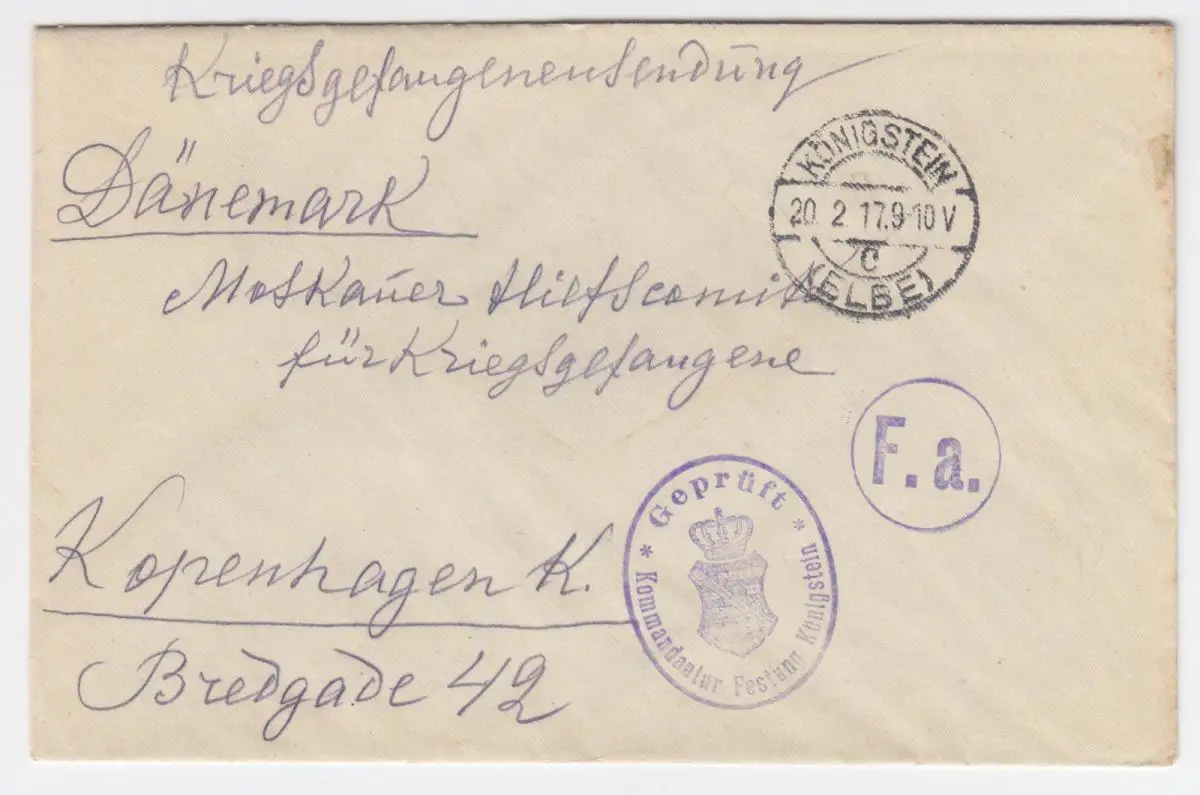 Kriegsgefangenensendung
Dänemark
KÖNIGSTEIN
20. 2. 17. 9-10 V
c
(ELBE)
Moskauer Hilfscomité
für Kriegsgefangene
F. a.
* Geprüft *
Kommandantur Festung Königstein
Kopenhagen K.
Bredgade 42